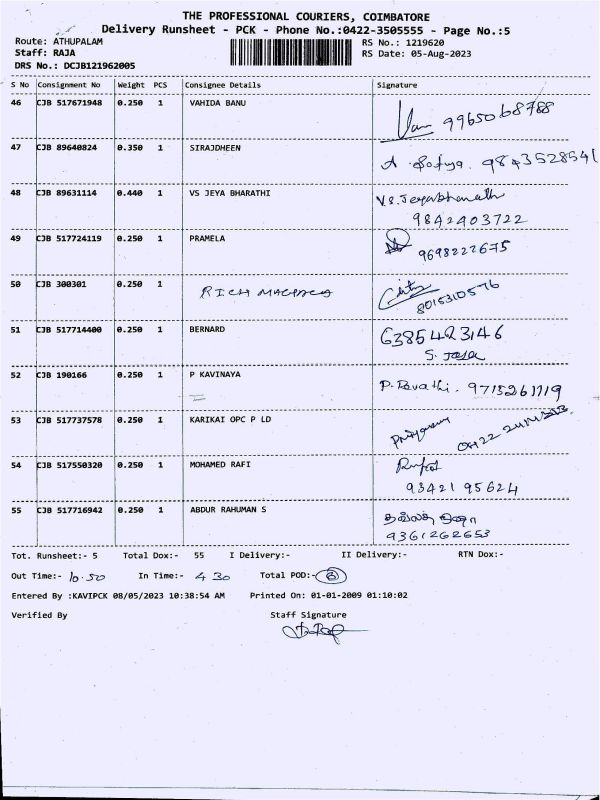 THE PROFESSIONAL COURIERS, COIMBATORE
Delivery Runsheet - PCK - Phone No.:0422-3505555 - Page No.:5
Route: ATHUPALAM RS No.: 1219620
Staff: RAJA RS Date: 05-Aug-2023
DRS No.: DCJB121962005
S No Consignment No Weight PCS Consignee Details Signature
46 CJB 517671948 0.250 1 VAHIDA BANU
9965068788
47 CJB 89640824 0.350 1 SIRAJDHEEN
9843528541
48 CJB 89631114 0.440 1 VS JEYA BHARATHI V.S. Jeyabharathi
9842403722
49 CJB 517724119 0.250 1 PRAMELA
9698222675
50 CJB 300301 0.250 1 RICH
8015310576
51 CJB 517714400 0.250 1 BERNARD 6385423146
S.
52 CJB 190166 0.250 1 P KAVINAYA
P. 9715261119
53 CJB 517737578 0.250 1 KARIKAI OPC P LD
0422
54 CJB 517550320 0.250 1 MOHAMED RAFI
93421 95624
55 CJB 517716942 0.250 1 ABDUR RAHUMAN S
9361262653
Tot. Runsheet:- 5 Total Dox:- 55 I Delivery:- II Delivery:- RTN Dox:-
Out Time:- 10.50 In Time:- 4 30 Total POD:-
Entered By :KAVIPCK 08/05/2023 10:38:54 AM Printed On: 01-01-2009 01:10:02
Verified By Staff Signature